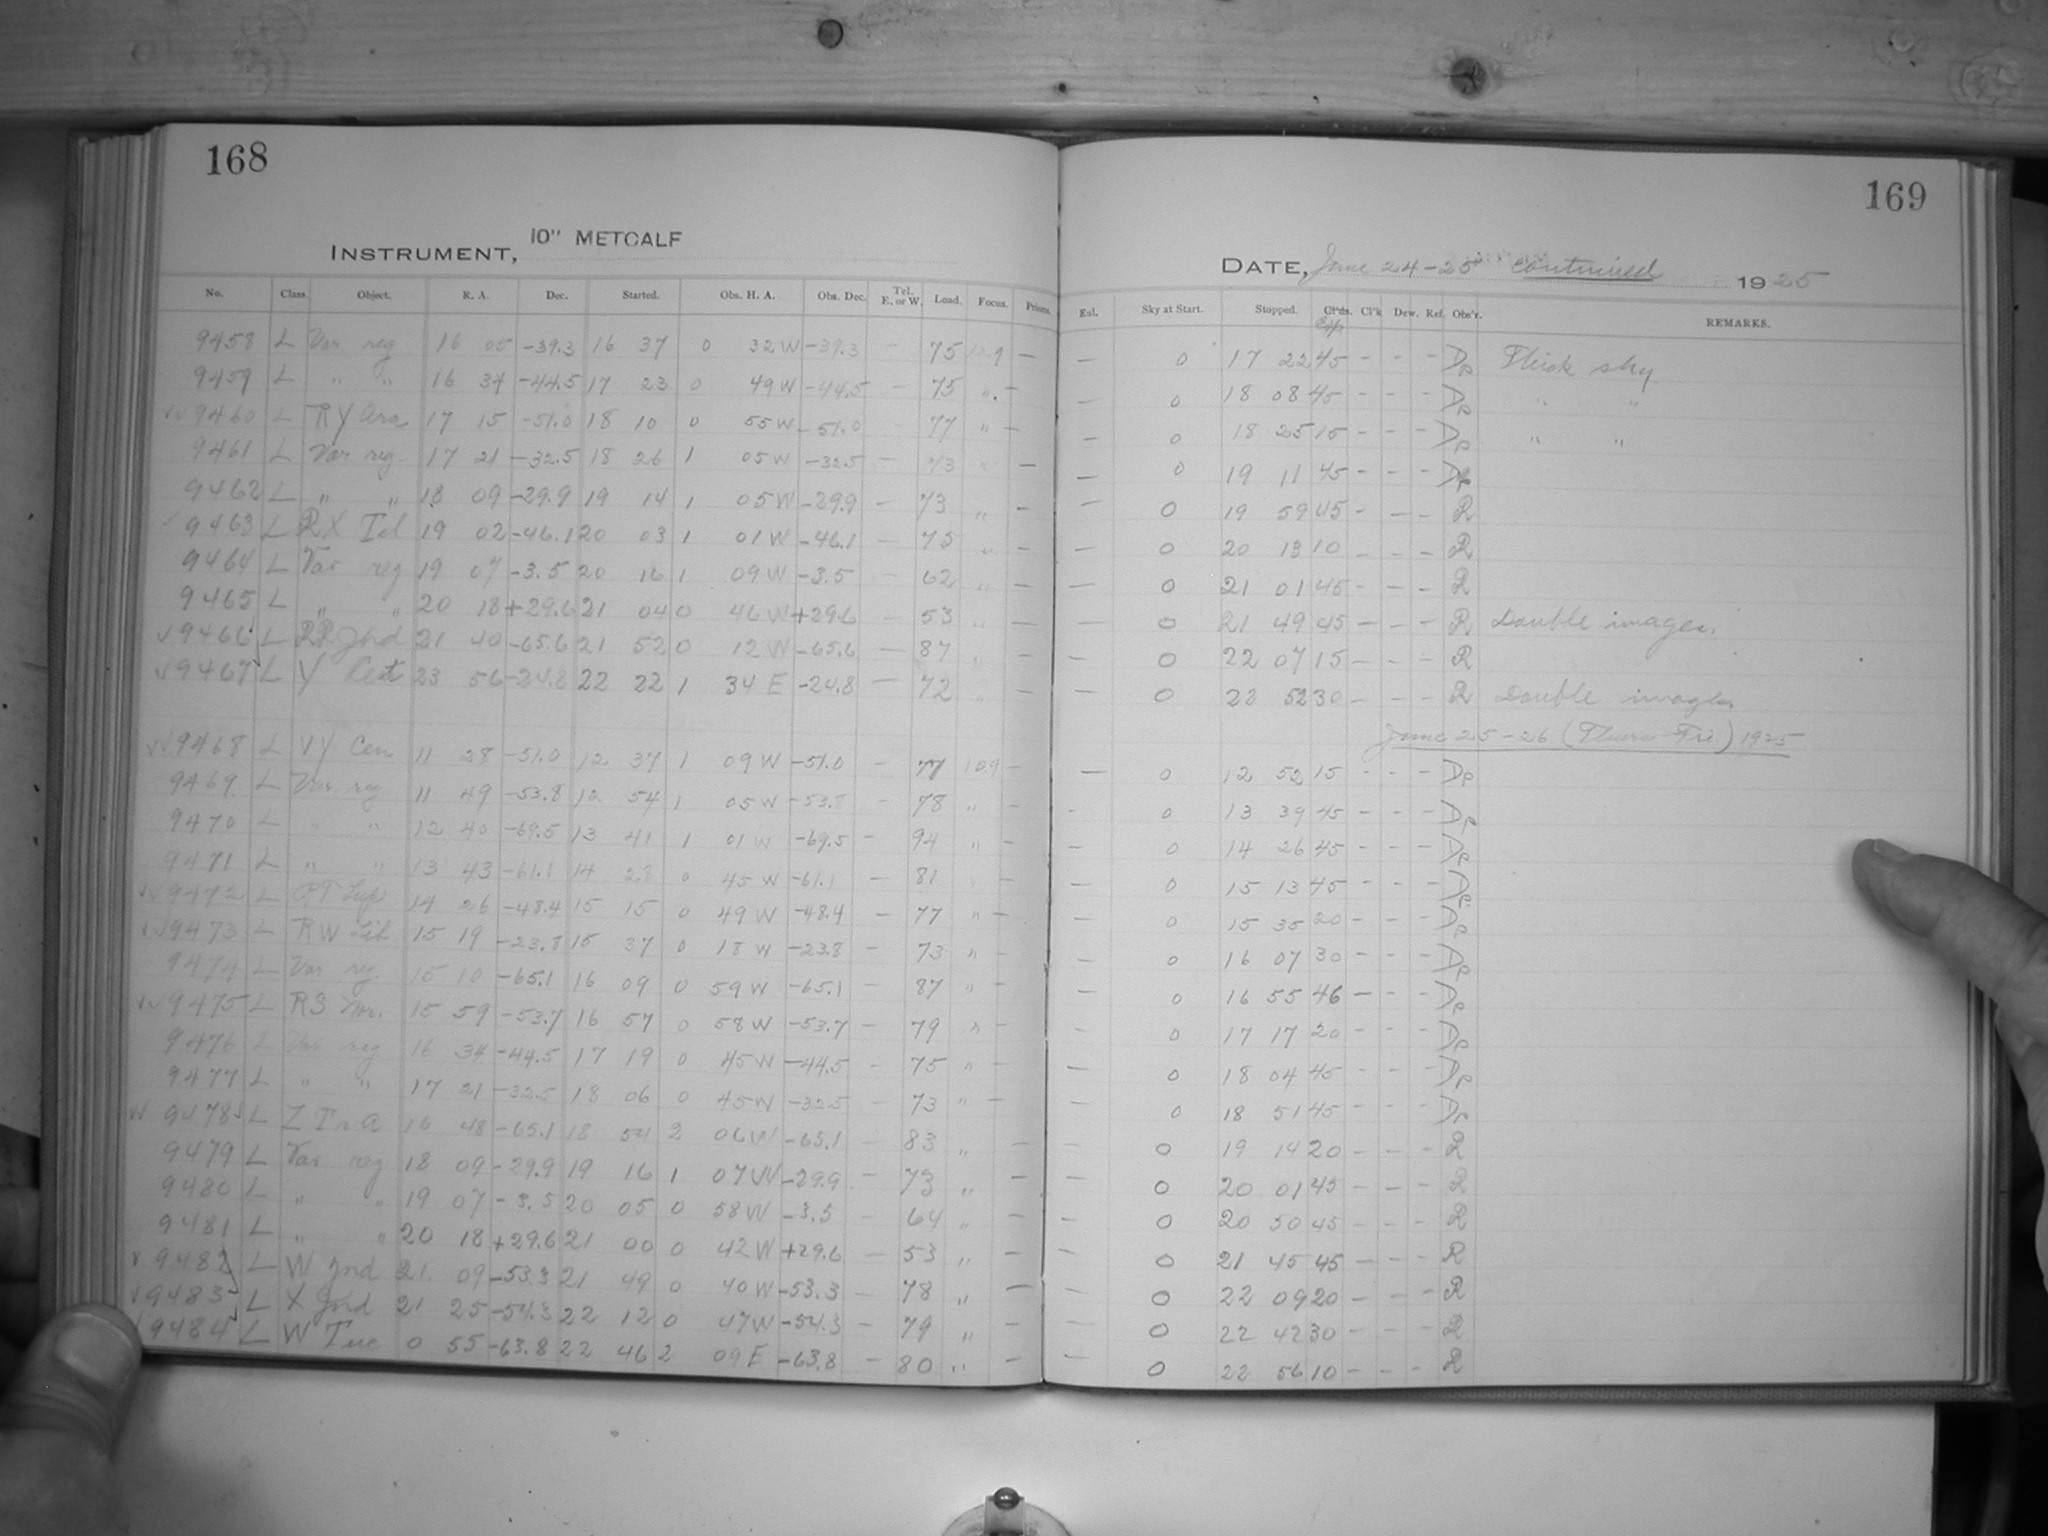 168
INSTRUMENT, 10" METCALF
No. Class. Object. R. A. Dec. Started. Obs. H. A. Obs. Dec. Tel. E. or W. Load. Focus. Prisms.
9458 L Var reg 16 05 -39.3 16 37 0 32 W -39.3 - 75 10.9 -
9459 L " " 16 34 -44.5 17 23 0 49 W -44.5 - 75 " -
√√ 9460 L RY Ara 17 15 -51.0 18 10 0 55 W -51.0 - 77 " -
9461 L Var. reg. 17 21 -32.5 18 26 1 05 W -32.5 - 73 " -
9462 L " " 18 09 -29.9 19 14 1 05 W -29.9 - 73 "
9463 L RX Tel 19 02 -46.1 20 03 1 01 W -46.1 - 75 " -
9464 L Var reg 19 07 -3.5 20 16 1 09 W -3.5 - 62 " -
9465 L " " 20 18 +29.6 21 04 0 46 W +29.6 - 53 " -
√ 9466 L RR Ind 21 40 -65.6 21 52 0 12 W -65.6 - 87 " -
√ 9467 L Y Cet 23 56 -24.8 22 22 1 34 E -24.8 - 72 " -
√√ 9468 L VY Cen 11 28 -51.0 12 37 1 09 W -51.0 - 77 10.9 -
9469 L Var reg 11 49 -53.8 12 54 1 05 W -53.8 - 78 " -
9470 L " " 12 40 -69.5 13 41 1 01 W -69.5 - 94 " -
9471 L " " 13 43 -61.1 14 28 0 45 W -61.1 - 81 " -
√√ 9472 L Lup 14 26 -48.4 15 15 0 49 W -48.4 - 77 " -
√√ 9473 L RW Lib 15 19 -23.8 15 37 0 18 W -23.8 - 73 " -
9474 L Var reg. 15 10 -65.1 16 09 0 59 W -65.1 - 87 " -
√√ 9475 L RS Nor. 15 59 -53.7 16 57 0 58 W -53.7 - 79 " -
9476 L Var reg 16 34 -44.5 17 19 0 45 W -44.5 - 75 " -
9477 L " " 17 21 -32.5 18 06 0 45 W -32.5 - 73 " -
√√ 9478 L Z Tr A 16 48 -65.1 18 54 2 06 W -65.1 - 83 " -
9479 L Var reg 18 09 -29.9 19 16 1 07 W -29.9 - 73 " -
9480 L " " 19 07 -3.5 20 05 0 58 W -3.5 - 64 " -
9481 L " " 20 18 +29.6 21 00 0 42 W +29.6 - 53 " -
√ 9482 L W Ind 21 09 -53.3 21 49 0 40 W -53.3 - 78 " -
√ 9483 L X Ind 21 25 -54.3 22 12 0 47 W -54.3 - 79 " -
√ 9484 L W Tuc 0 55 -63.8 22 46 2 09 E -63.8 - 80 " -
169
DATE, June 24-25 continued 1925
Enl. Sky at Start. Stopped. Cl'ds. Cl'k Dew. Ref. Obs'r. REMARKS.
Exp
- 0 17 22 45 - - - Thick sky
- 0 18 08 45 - - - " "
- 0 18 25 15 - - - " "
- 0 19 11 45 - - -
- 0 19 59 45 - - - R
- 0 20 13 10 - - - R
- 0 21 01 45 - - - R
- 0 21 49 45 - - - R Double images.
- 0 22 07 15 - - - R
- 0 22 52 30 - - - R Double images
June 25-26 (Thurs-Fri) 1925
- 0 12 52 15 - - -
- 0 13 39 45 - - -
- 0 14 26 45 - - -
- 0 15 13 45 - - -
- 0 15 35 20 - - -
- 0 16 07 30 - - -
- 0 16 55 46 - - -
- 0 17 17 20 - - -
- 0 18 04 45 - - -
- 0 18 51 45 - - -
- 0 19 14 20 - - - R
- 0 20 01 45 - - - R
- 0 20 50 45 - - - R
- 0 21 45 45 - - - R
- 0 22 09 20 - - - R
- 0 22 42 30 - - - R
- 0 22 56 10 - - - R